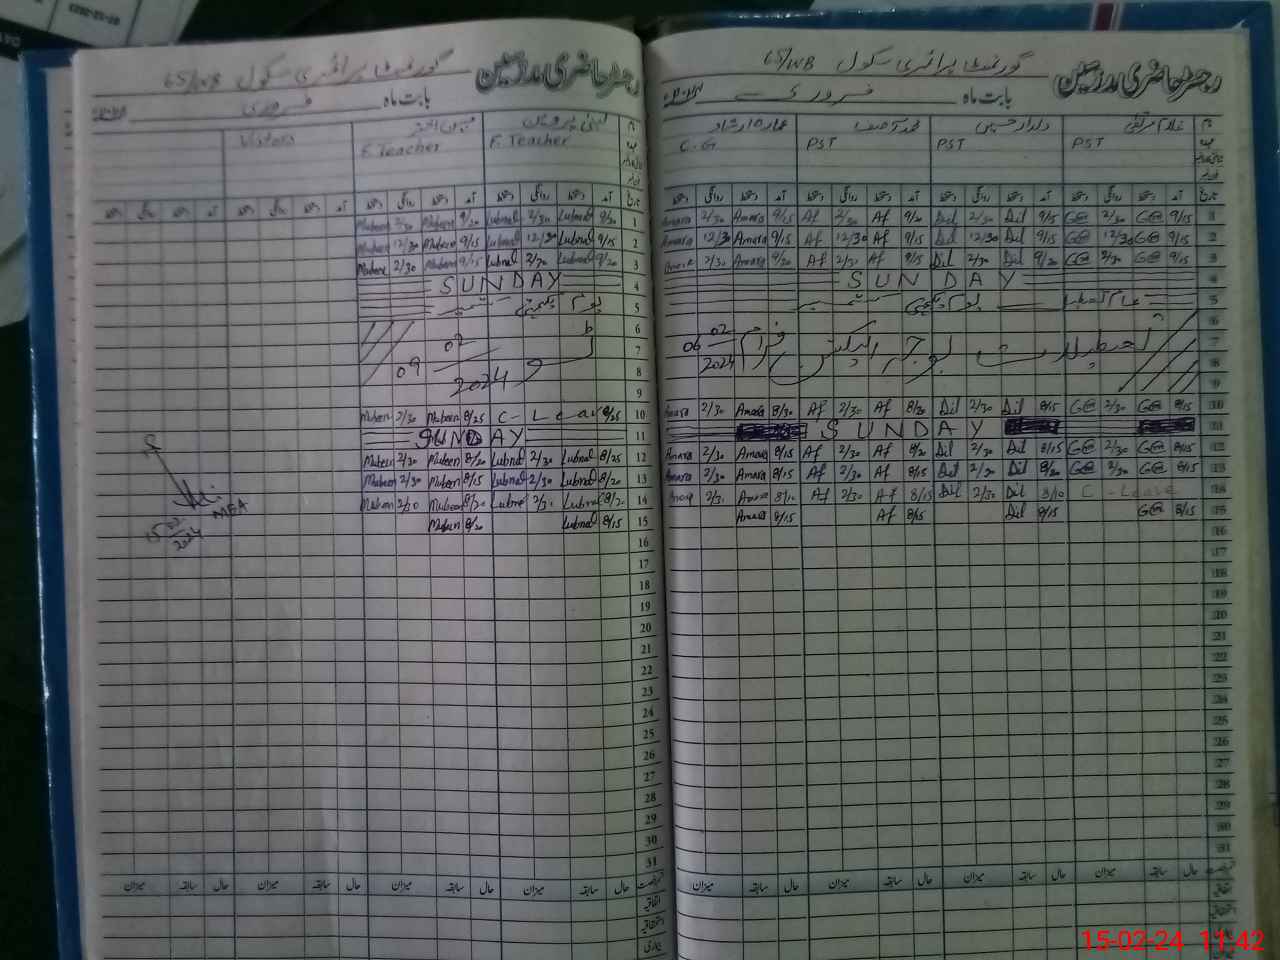 رجسٹر حاضری مدرسین گورنمنٹ پرائمری سکول 65/WB
بابت ماہ فروری
غلام مرتضیٰ دلدار حسین محمد آصف عمارہ ارشاد
PST PST PST C.G
تاریخ آمد دستخط روانگی دستخط آمد دستخط روانگی دستخط آمد دستخط روانگی دستخط آمد دستخط روانگی دستخط
1 9/15 G@ 2/30 G@ 9/15 Dil 2/30 Dil 9/20 Af 2/30 Af 9/15 Amara 2/30 Amara
2 9/15 G@ 12/30 G@ 9/15 Dil 12/30 Dil 9/15 Af 12/30 Af 9/15 Amara 12/30 Amara
3 9/15 G@ 2/30 G@ 9/20 Dil 2/30 Dil 9/15 Af 2/30 Af 9/20 Amara 2/30
4 SUNDAY
5 عام تعطیل یوم یکجہتی کشمیر
6
7 تعطیلات بوجہ الیکشن فرام 06 02 2024
8
9
10 8/15 G@ 2/30 G@ 8/15 Dil 2/30 Dil 8/20 Af 2/30 Af 8/30 Amara 2/30 Amara
11 SUNDAY
12 8/15 G@ 2/30 G@ 8/15 Dil 2/30 Dil 8/20 Af 2/30 Af 8/15 Amara 2/30 Amara
13 8/15 G@ 2/30 G@ 8/20 Dil 2/30 Dil 8/15 Af 2/30 Af 8/15 Amara 2/30 Amara
14 C-Leave 8/10 Dil 2/30 Dil 8/15 Af 2/30 Af 8/10
15 8/15 G@ 8/15 Dil 8/15 Af 8/15 Amara
16
17
18
19
20
21
22
23
24
25
26
27
28
29
30
31
حال سابقہ میزان حال سابقہ میزان حال سابقہ میزان حال سابقہ میزان
رجسٹر حاضری مدرسین گورنمنٹ پرائمری سکول 65/WB
بابت ماہ فروری
لبنیٰ پروین مبین اختر
F. Teacher F. Teacher Visitors
تاریخ آمد دستخط روانگی دستخط آمد دستخط روانگی دستخط آمد دستخط روانگی دستخط آمد دستخط روانگی دستخط
1 9/20 Lubna 2/30 Lubna 9/20 Mubeen 2/30 Mubeen
2 9/15 Lubna 12/30 Lubna 9/15 Mubeen 12/30 Mubeen
3 9/20 Lubna 2/30 Lubna 9/15 Mubeen 2/30 Mubeen
4 SUNDAY
5 یوم یکجہتی کشمیر
6
7 09 02 2024
8
9
10 C-Leave 8/25 Mubeen 2/30 Mubeen
11 SUNDAY
12 8/25 Lubna 2/30 Lubna 8/20 Mubeen 2/30 Mubeen
13 8/20 Lubna 2/30 Lubna 8/15 Mubeen 2/30 Mubeen
14 8/20 Lubna 2/30 Lubna 8/20 Mubeen 2/30 Mubeen
15 8/15 Lubna 8/20 Mubeen
MEA
15 02 2024
16
17
18
19
20
21
22
23
24
25
26
27
28
29
30
31
حال سابقہ میزان حال سابقہ میزان حال سابقہ میزان حال سابقہ میزان
اتفاقیہ
استحقاقیہ
بیماری
15-02-24 11:42